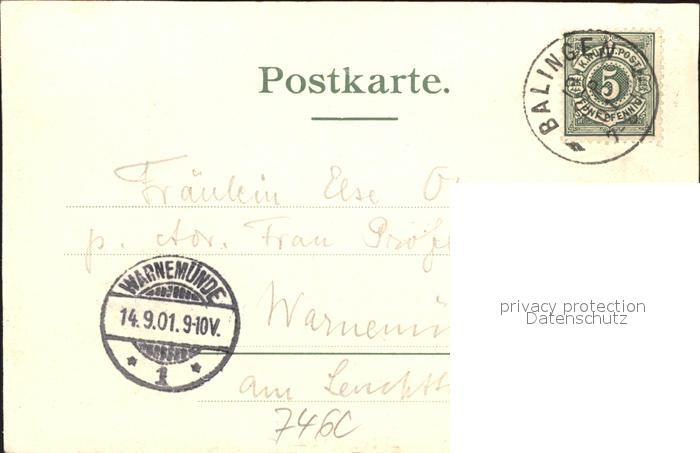 Postkarte.
BALINGEN
K.WÜRTT.POST
5
FÜNF PFENNIG
Fräulein Else
p. Adr. Frau
WARNEMÜNDE
14.9.01.9-10V.
1
am
746C
privacy protection
Datenschutz